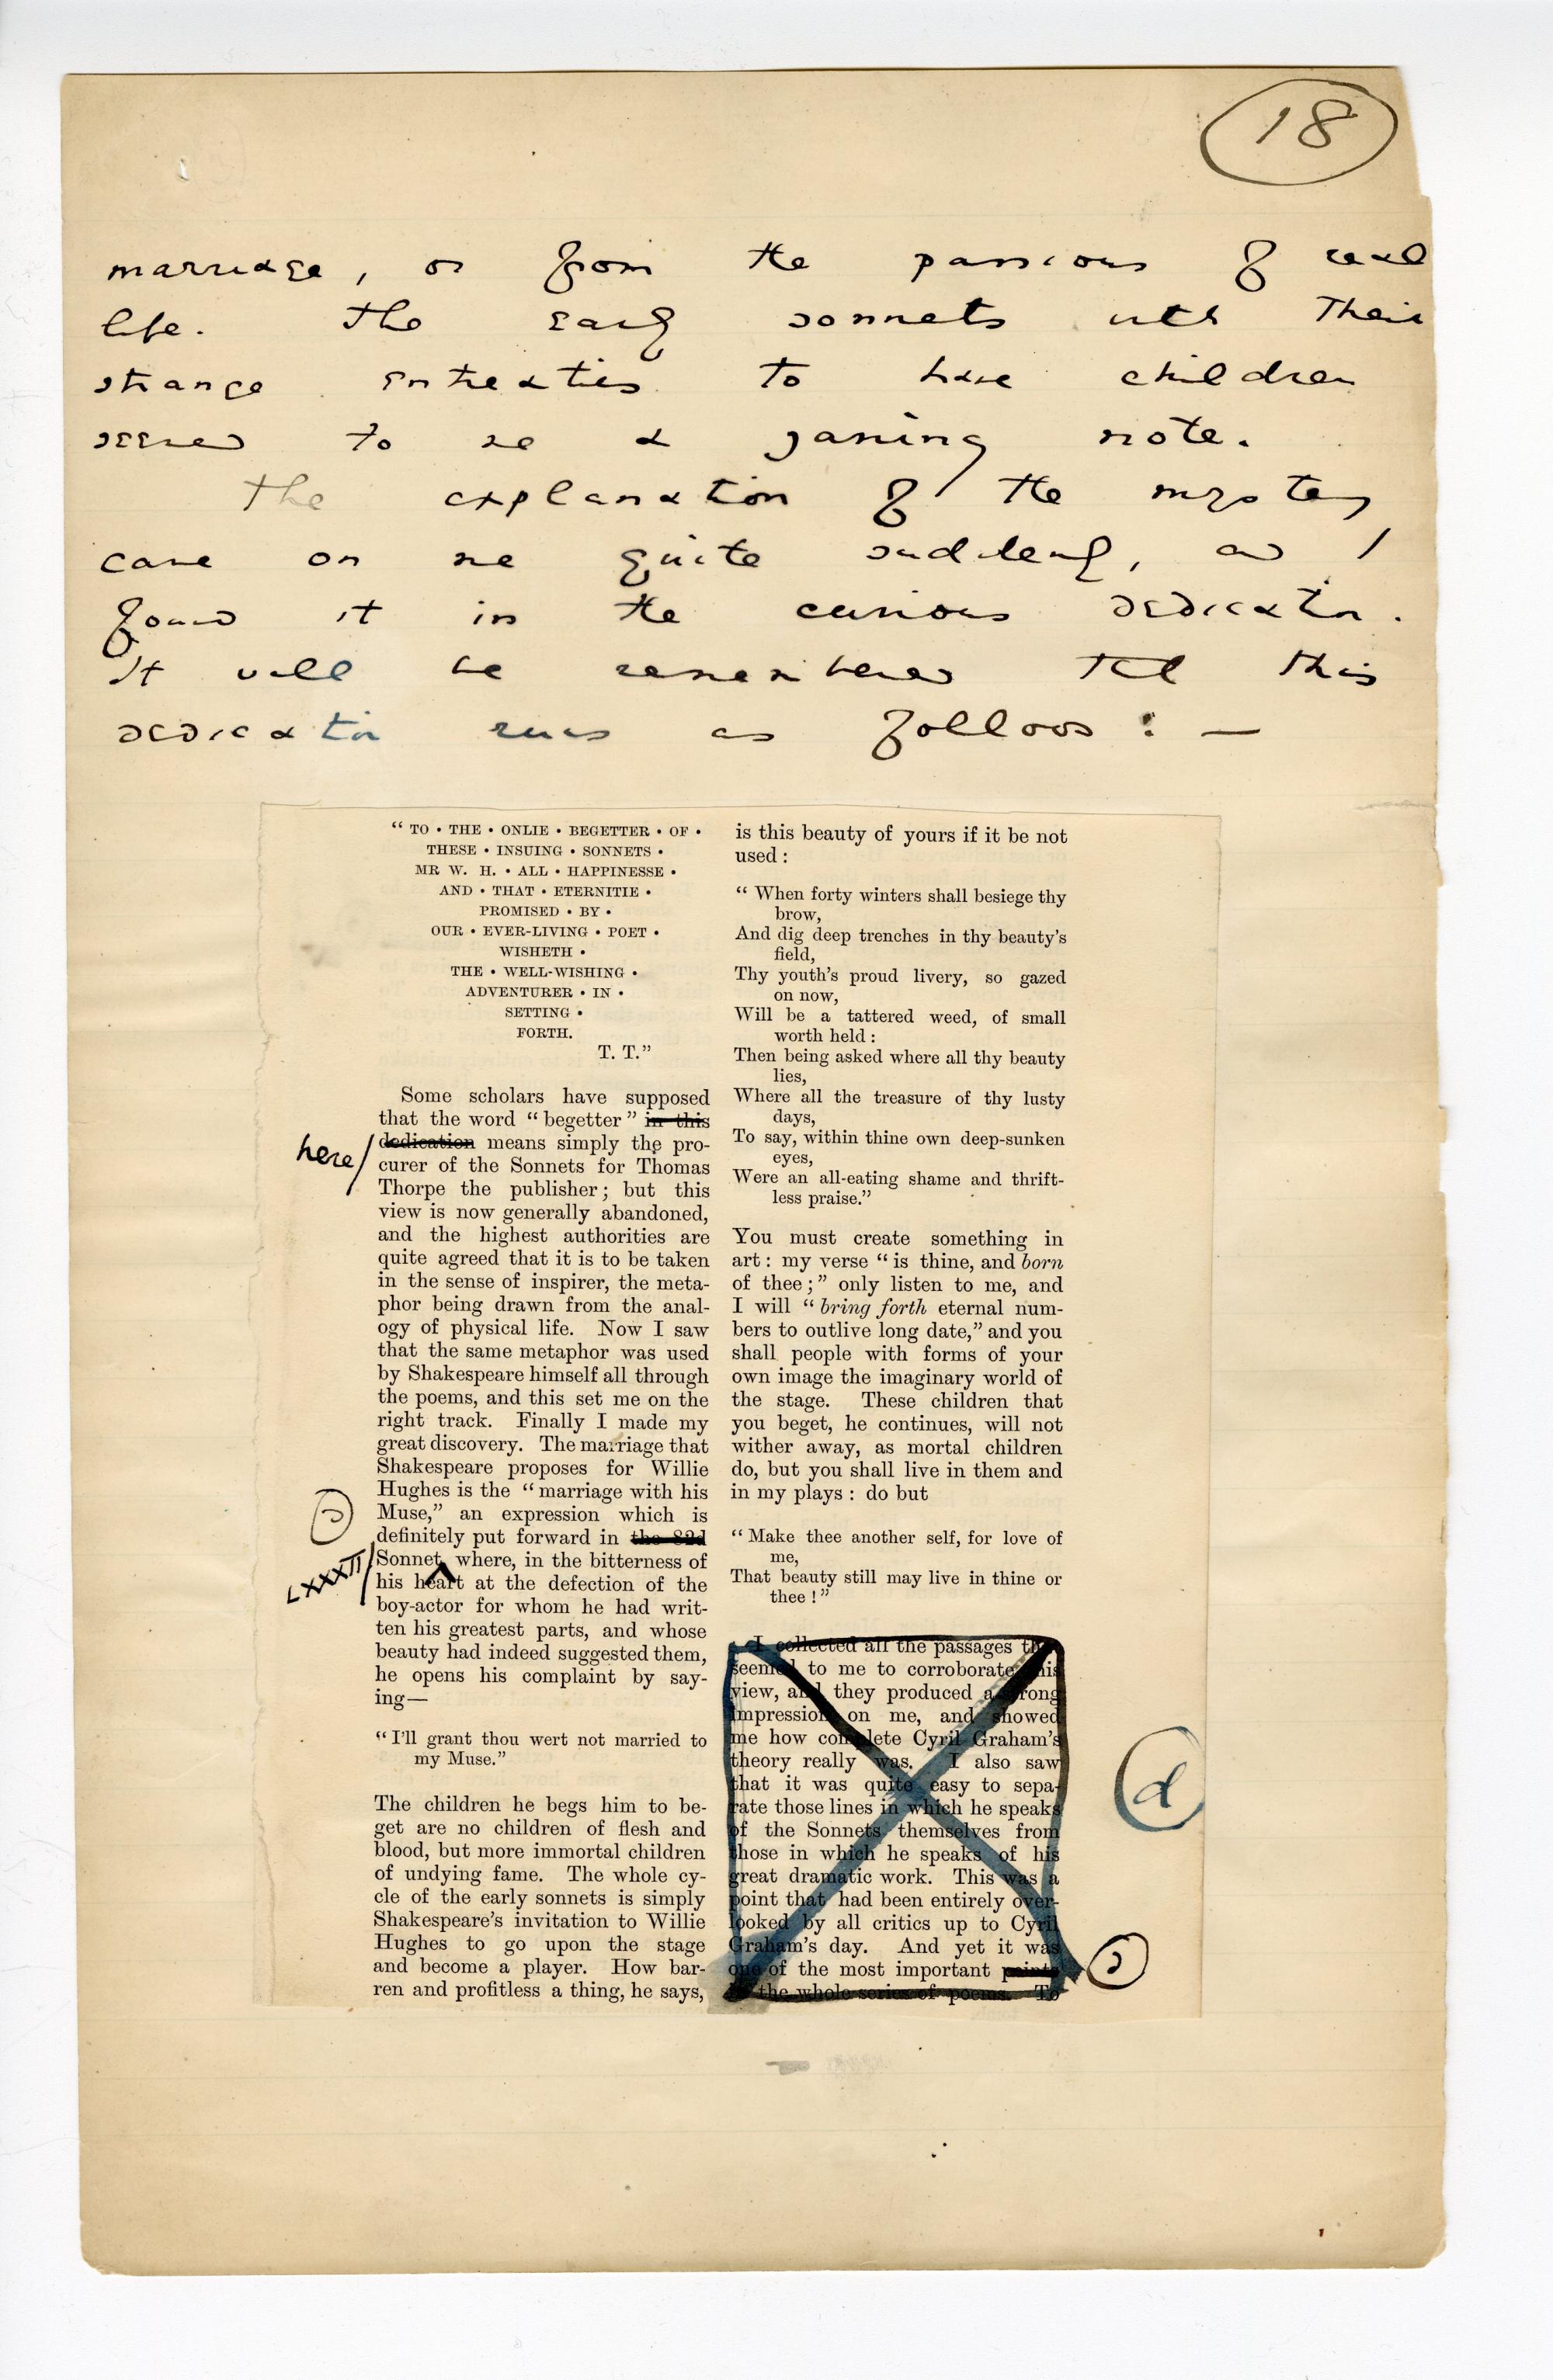 18
marriage, or from the passions of real
life. The early sonnets with their
strange entreaties to have children
seemed to me a jarring note.
The explanation of the mystery
came on me quite suddenly, and I
found it in the curious dedication.
It will be remembered that this
dedication runs as follows : —
“ TO • THE • ONLIE • BEGETTER • OF •
THESE • INSUING • SONNETS •
MR W. H. • ALL • HAPPINESSE •
AND • THAT • ETERNITIE •
PROMISED • BY •
OUR • EVER-LIVING • POET •
WISHETH •
THE • WELL-WISHING •
ADVENTURER • IN •
SETTING •
FORTH.
T. T.”
Some scholars have supposed
that the word “ begetter ” in this
here/
dedication means simply the pro-
curer of the Sonnets for Thomas
Thorpe the publisher; but this
view is now generally abandoned,
and the highest authorities are
quite agreed that it is to be taken
in the sense of inspirer, the meta-
phor being drawn from the anal-
ogy of physical life. Now I saw
that the same metaphor was used
by Shakespeare himself all through
the poems, and this set me on the
right track. Finally I made my
great discovery. The marriage that
Shakespeare proposes for Willie
Hughes is the “ marriage with his
Muse,” an expression which is
definitely put forward in the 82d
LXXXII/
Sonnet, where, in the bitterness of
his heart at the defection of the
boy-actor for whom he had writ-
ten his greatest parts, and whose
beauty had indeed suggested them,
he opens his complaint by say-
ing—
“ I’ll grant thou wert not married to
my Muse.”
The children he begs him to be-
get are no children of flesh and
blood, but more immortal children
of undying fame. The whole cy-
cle of the early sonnets is simply
Shakespeare’s invitation to Willie
Hughes to go upon the stage
and become a player. How bar-
ren and profitless a thing, he says,
is this beauty of yours if it be not
used :
“ When forty winters shall besiege thy
brow,
And dig deep trenches in thy beauty’s
field,
Thy youth’s proud livery, so gazed
on now,
Will be a tattered weed, of small
worth held :
Then being asked where all thy beauty
lies,
Where all the treasure of thy lusty
days,
To say, within thine own deep-sunken
eyes,
Were an all-eating shame and thrift-
less praise.”
You must create something in
art : my verse “ is thine, and born
of thee ; ” only listen to me, and
I will “ bring forth eternal num-
bers to outlive long date,” and you
shall people with forms of your
own image the imaginary world of
the stage. These children that
you beget, he continues, will not
wither away, as mortal children
do, but you shall live in them and
in my plays : do but
“ Make thee another self, for love of
me,
That beauty still may live in thine or
thee ! ”
I collected all the passages that
seemed to me to corroborate this
view, and they produced a strong
impression on me, and showed
me how complete Cyril Graham’s
theory really was. I also saw
that it was quite easy to sepa-
rate those lines in which he speaks
of the Sonnets themselves from
those in which he speaks of his
great dramatic work. This was a
point that had been entirely over-
looked by all critics up to Cyril
Graham’s day. And yet it was
one of the most important points
in the whole series of poems. To
d